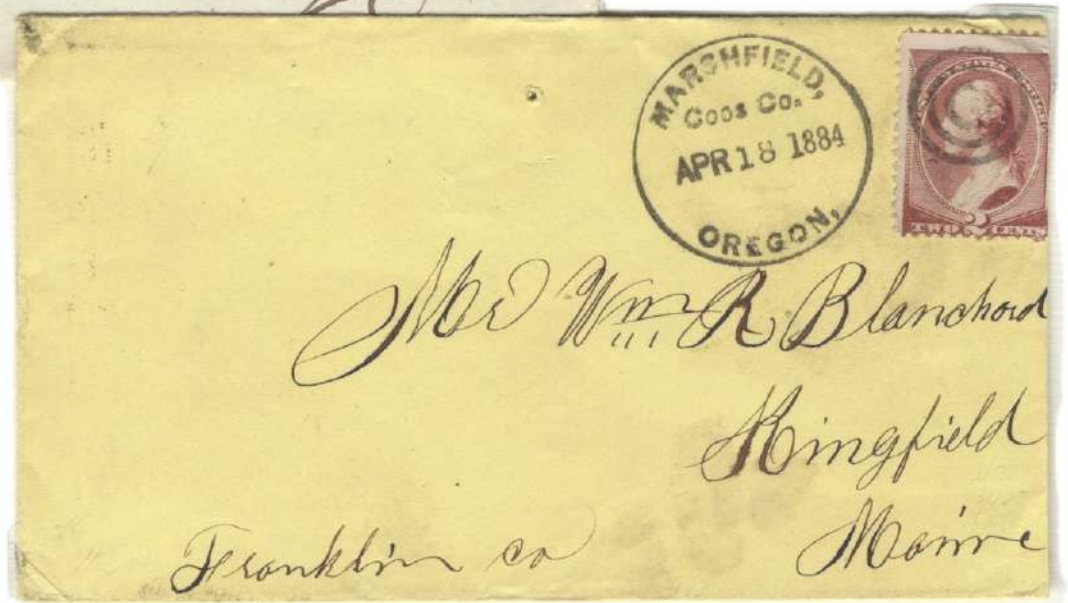 MARSHFIELD,
Coos Co.
APR 18 1884
OREGON,
TWO 2 CENTS
Mr Wm R Blanchard
Kingfield
Maine
Franklin co